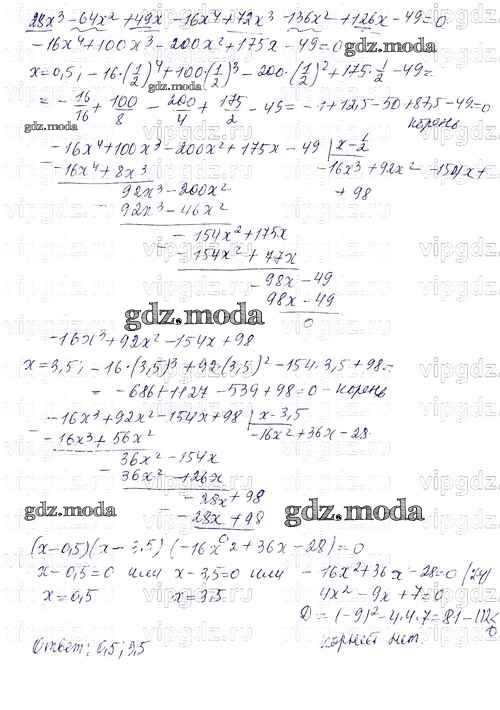 28x³-64x²+49x-16x⁴+72x³-136x²+126x-49=0
-16x⁴+100x³-200x²+175x-49=0
x=0,5; -16·(1/2)⁴+100·(1/2)³-200·(1/2)²+175·1/2-49=
=-16/16+100/8-200/4+175/2-49=-1+12,5-50+87,5-49=0
корень
-16x⁴+100x³-200x²+175x-49 | x-1/2
-16x⁴+8x³ -16x³+92x²-154x+
92x³-200x² +98
92x³-46x²
-154x²+175x
-154x²+77x
98x-49
98x-49
0
gdz.moda
-16x³+92x²-154x+98
x=3,5; -16·(3,5)³+92(3,5)²-154·3,5+98=
=-686+1127-539+98=0-корень
-16x³+92x²-154x+98 | x-3,5
-16x³+56x² -16x²+36x-28
36x²-154x
36x²-126x
-28x+98
-28x+98
gdz.moda gdz.moda
0
(x-0,5)(x-3,5)(-16x²+36x-28)=0
x-0,5=0 или x-3,5=0 или -16x²+36x-28=0
x=0,5 x=3,5 4x²-9x+7=0
D=(-9)²-4·4·7=81-112<0
корней нет.
Ответ: 0,5; 3,5